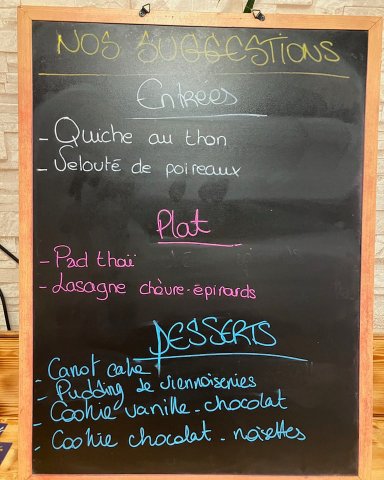 NOS SUGGESTIONS
Entrées
- Quiche au thon
- Velouté de poireaux
Plat
- Pad thaï
- Lasagne chèvre-épinards
DESSERTS
- Carrot cake
- Pudding de viennoiseries
- Cookie vanille-chocolat
- Cookie chocolat-noisettes